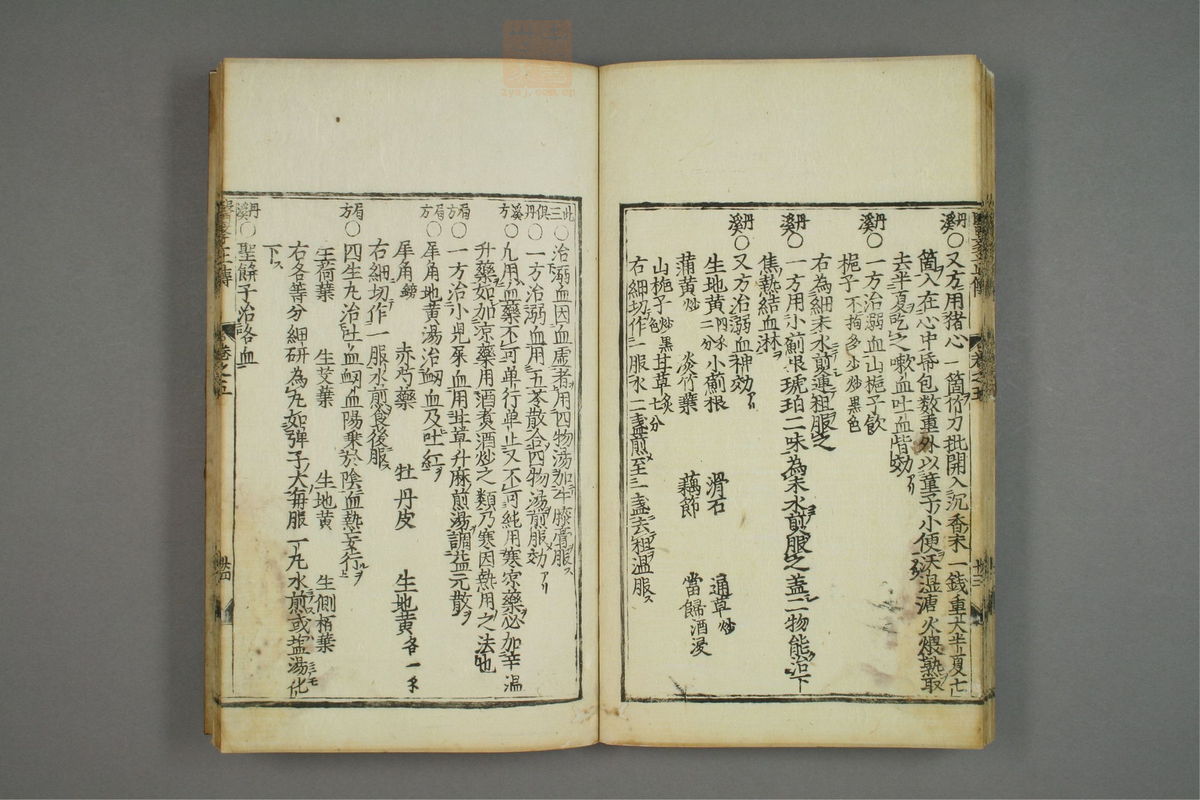 丹溪○又方用猪心一箇竹刀批開入沉香末一錢重大半夏七
箇入在心中帋包数重外以童子小便浸湿灰火煨熟取
去半夏吃之嗽血吐血皆効
丹溪○一方治溺血山梔子飲
梔子不拘多少炒黒色
右為細末水煎連粗服之
丹溪○一方用小薊根琥珀二味為末水煎服之盖二物能治下
焦熱結血淋
丹溪○又方治溺血神効
生地黄 小薊根 滑石 通草炒
蒲黄炒 淡竹葉 藕節 當歸酒浸
山梔子炒黒色 甘草炙七分
右細切作一服水二盞煎至一盞去粗温服
此三俱丹溪方
○治溺血因血虚者用四物湯加牛膝膏服
○一方治溺血用五苓散合四物湯煎服効
○凡用血藥不可单行单止又不可純用寒凉藥必加辛温
升藥如加凉藥用酒煮酒炒之類乃寒因熱用之法也
局方○一方治小児尿血用甘草升麻煎湯調益元散
局方○犀角地黄湯治衂血及吐紅
犀角鎊 赤芍藥 牡丹皮 生地黄各一
右細切作一服水煎食後服
局方○四生丸治吐血衂血陽乗於陰血熱妄行
生荷葉 生艾葉 生地黄 生側栢葉
右各等分細研為丸如弾子大毎服一丸水煎或塩湯化
下
丹溪○聖餅子治咯血
zysj.com.cn